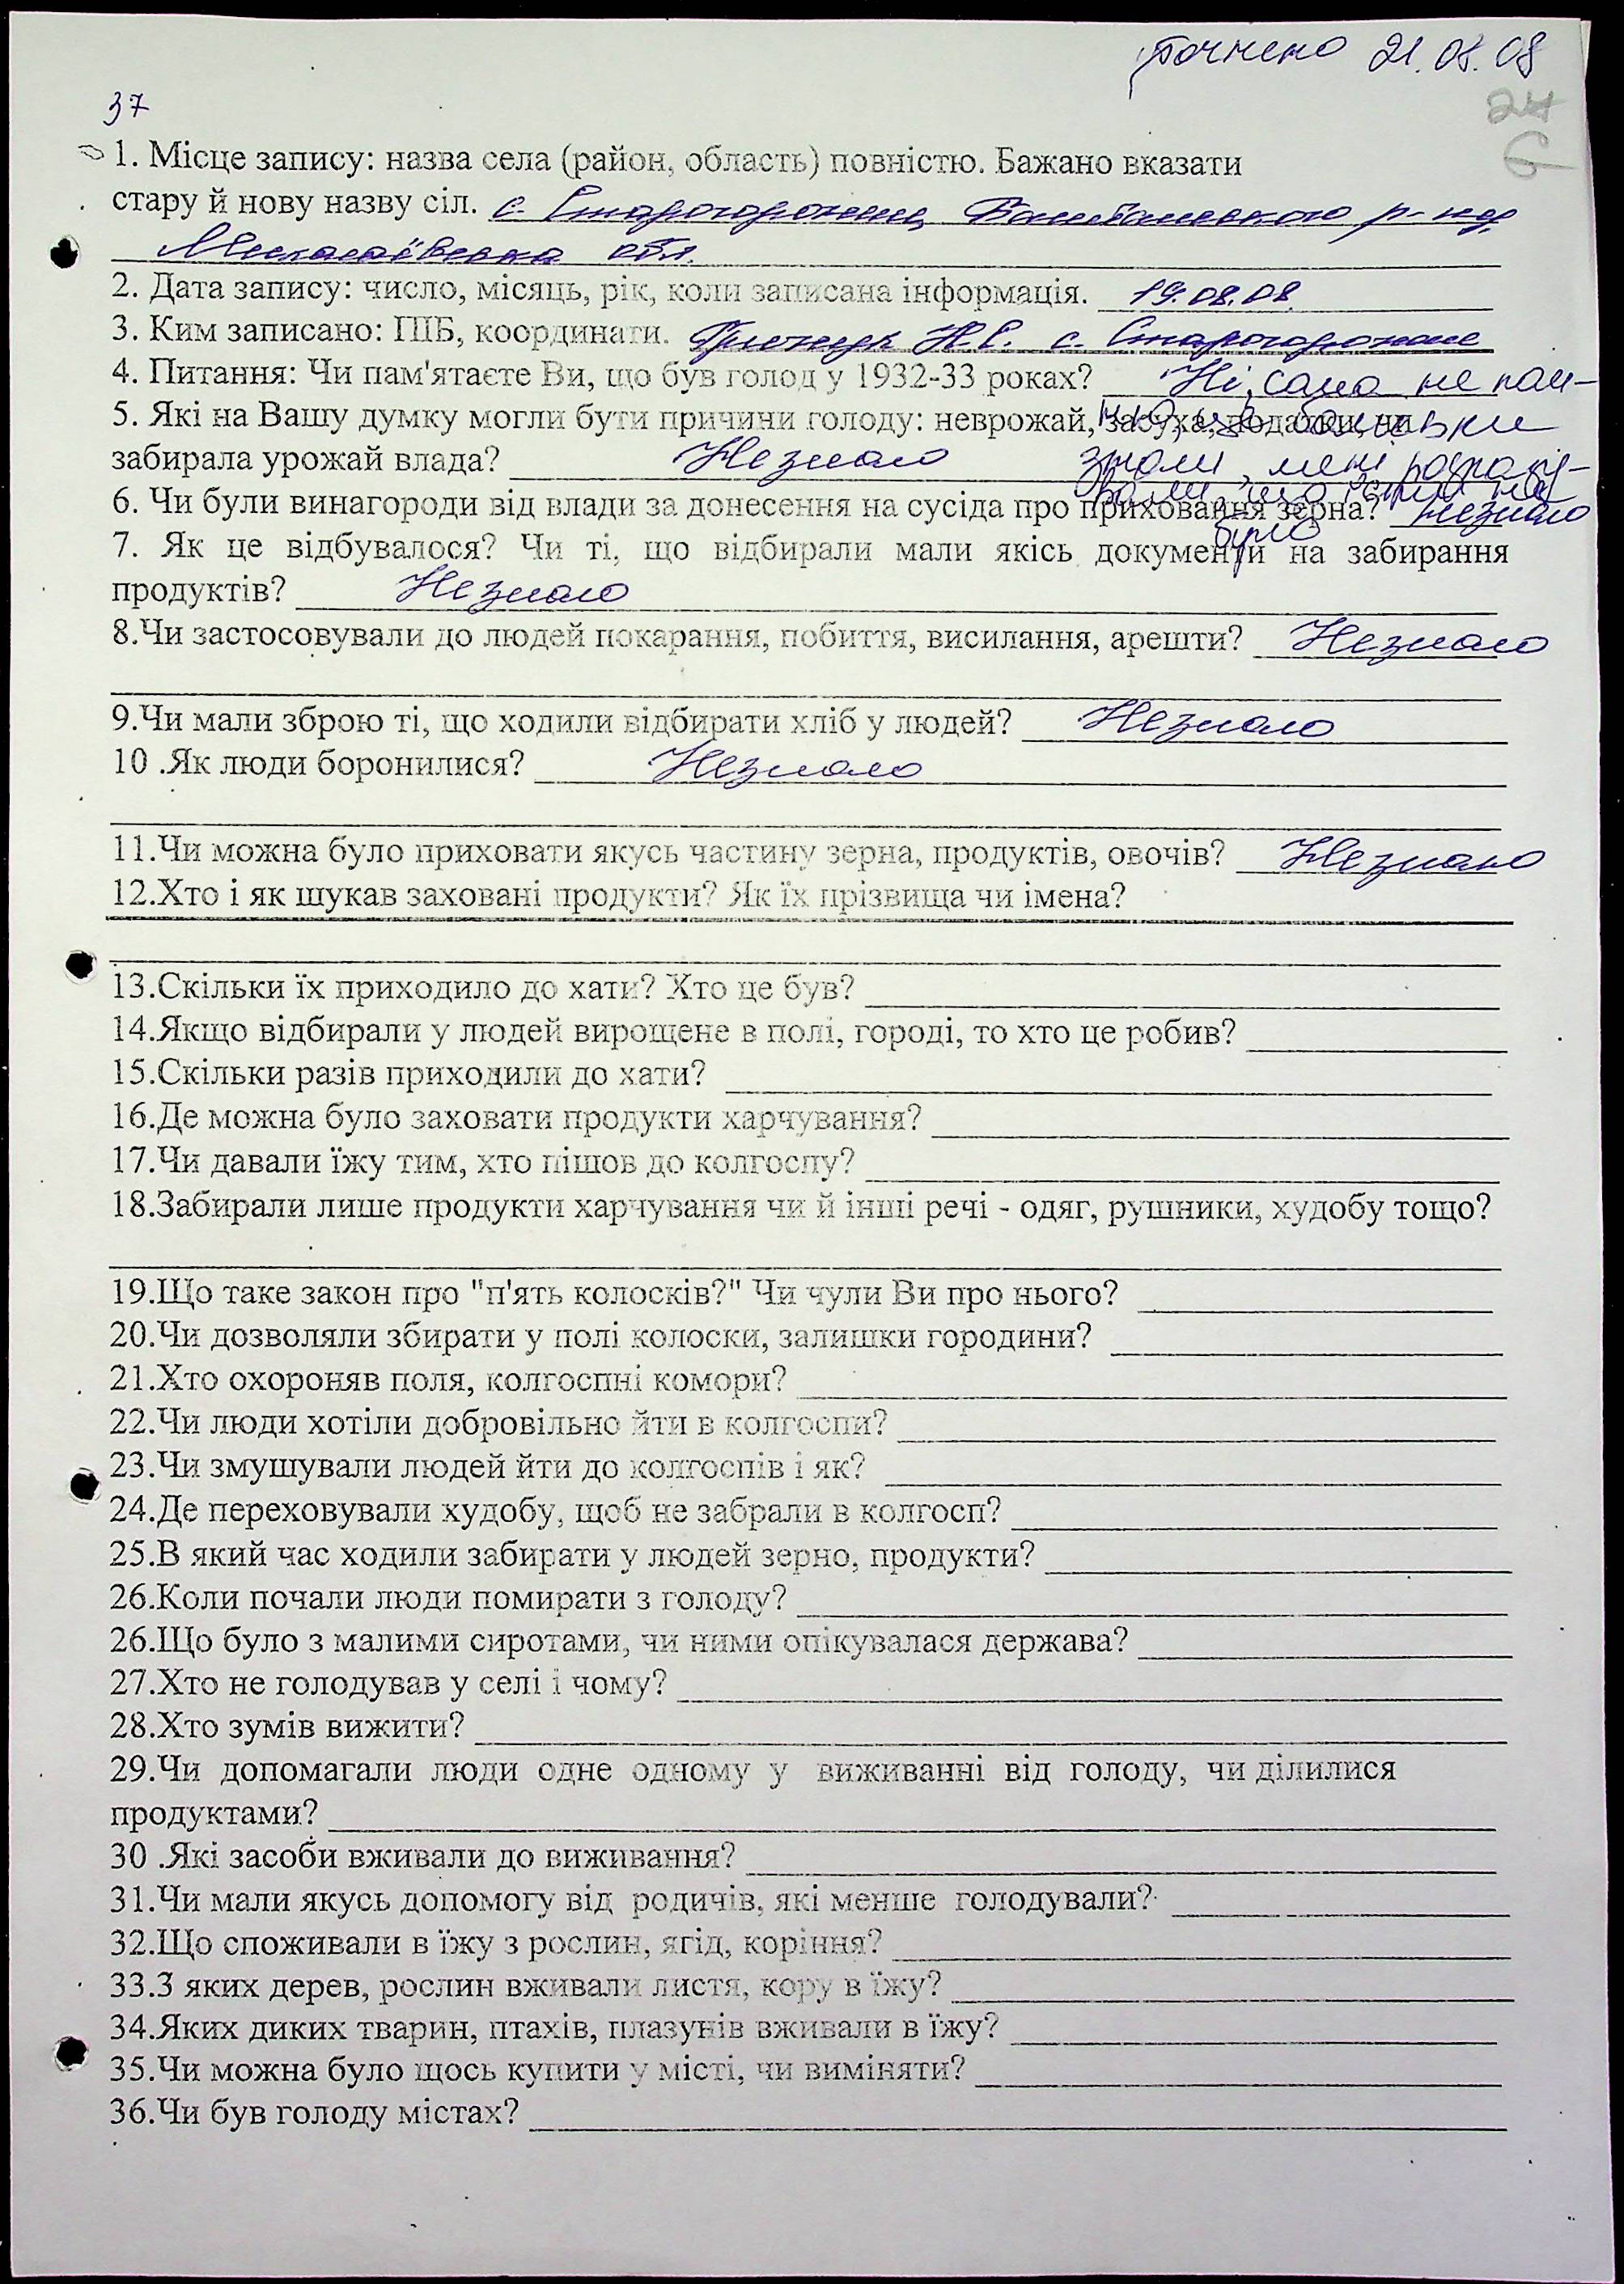 уточнено 21.08.08
24
37
1. Місце запису: назва села (район, область) повністю. Бажано вказати
стару й нову назву сіл. с. Старогорожене Баштанського р-ну,
Миколаївська обл.
2. Дата запису: число, місяць, рік, коли записана інформація. 19.08.08
3. Ким записано: ПІБ, координати. Н.С. с. Старогорожене
4. Питання: Чи пам'ятаєте Ви, що був голод у 1932-33 роках? Ні, сама не пам-
5. Які на Вашу думку могли бути причини голоду: неврожай, засуха, податки, чи
забирала урожай влада? Не знаю
6. Чи були винагороди від влади за донесення на сусіда про приховання зерна? не знаю
7. Як це відбувалося? Чи ті, що відбирали мали якісь документи на забирання
продуктів? Не знаю
8.Чи застосовували до людей покарання, побиття, висилання, арешти? Не знаю
9.Чи мали зброю ті, що ходили відбирати хліб у людей? Не знаю
10 .Як люди боронилися? Не знаю
11.Чи можна було приховати якусь частину зерна, продуктів, овочів? Не знаю
12.Хто і як шукав заховані продукти? Як їх прізвища чи імена?
13.Скільки їх приходило до хати? Хто це був?
14.Якщо відбирали у людей вирощене в полі, городі, то хто це робив?
15.Скільки разів приходили до хати?
16.Де можна було заховати продукти харчування?
17.Чи давали їжу тим, хто пішов до колгоспу?
18.Забирали лише продукти харчування чи й інші речі - одяг, рушники, худобу тощо?
19.Що таке закон про "п'ять колосків?" Чи чули Ви про нього?
20.Чи дозволяли збирати у полі колоски, залишки городини?
21.Хто охороняв поля, колгоспні комори?
22.Чи люди хотіли добровільно йти в колгоспи?
23.Чи змушували людей йти до колгоспів і як?
24.Де переховували худобу, щоб не забрали в колгосп?
25.В який час ходили забирати у людей зерно, продукти?
26.Коли почали люди помирати з голоду?
26.Що було з малими сиротами, чи ними опікувалася держава?
27.Хто не голодував у селі і чому?
28.Хто зумів вижити?
29.Чи допомагали люди одне одному у виживанні від голоду, чи ділилися
продуктами?
30 .Які засоби вживали до виживання?
31.Чи мали якусь допомогу від родичів, які менше голодували?
32.Що споживали в їжу з рослин, ягід, коріння?
33.З яких дерев, рослин вживали листя, кору в їжу?
34.Яких диких тварин, птахів, плазунів вживали в їжу?
35.Чи можна було щось купити у місті, чи виміняти?
36.Чи був голоду містах?